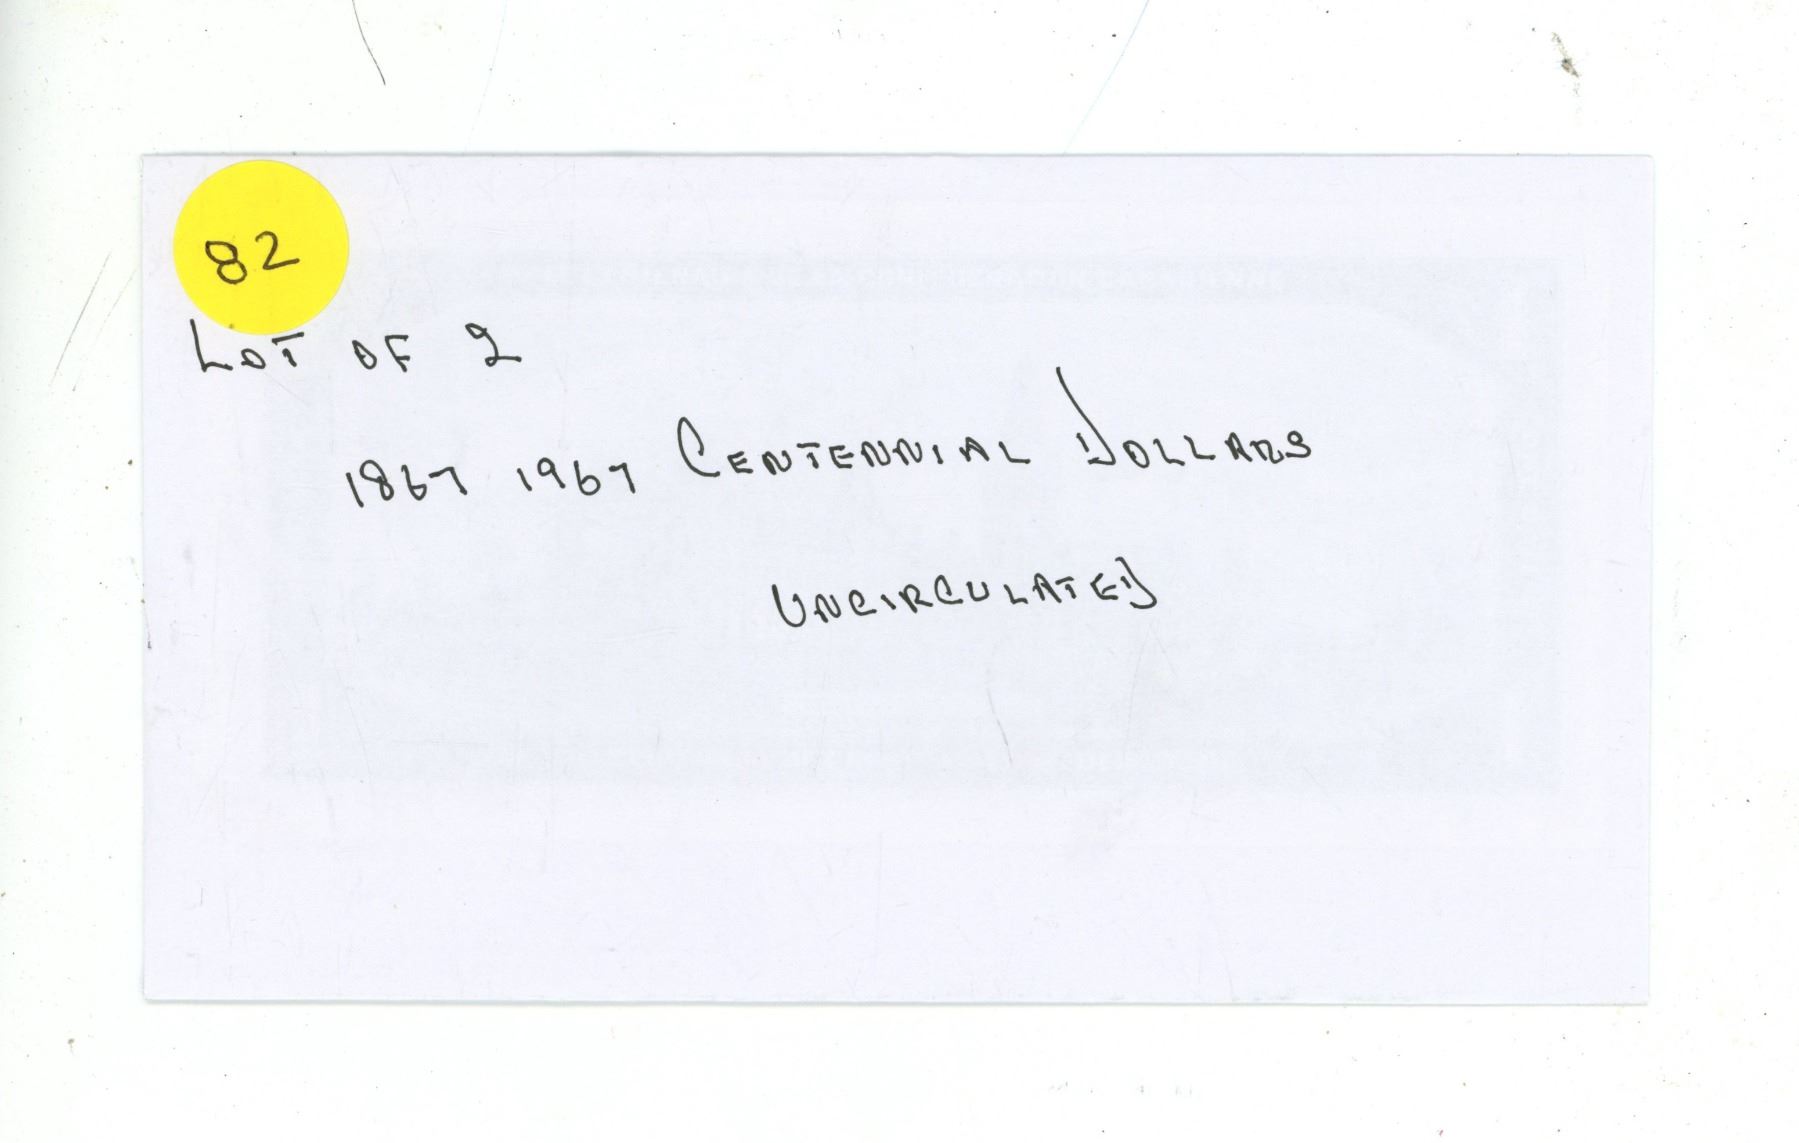 82
LOT OF 2
1867 1967 CENTENNIAL DOLLARS
UNCIRCULATED